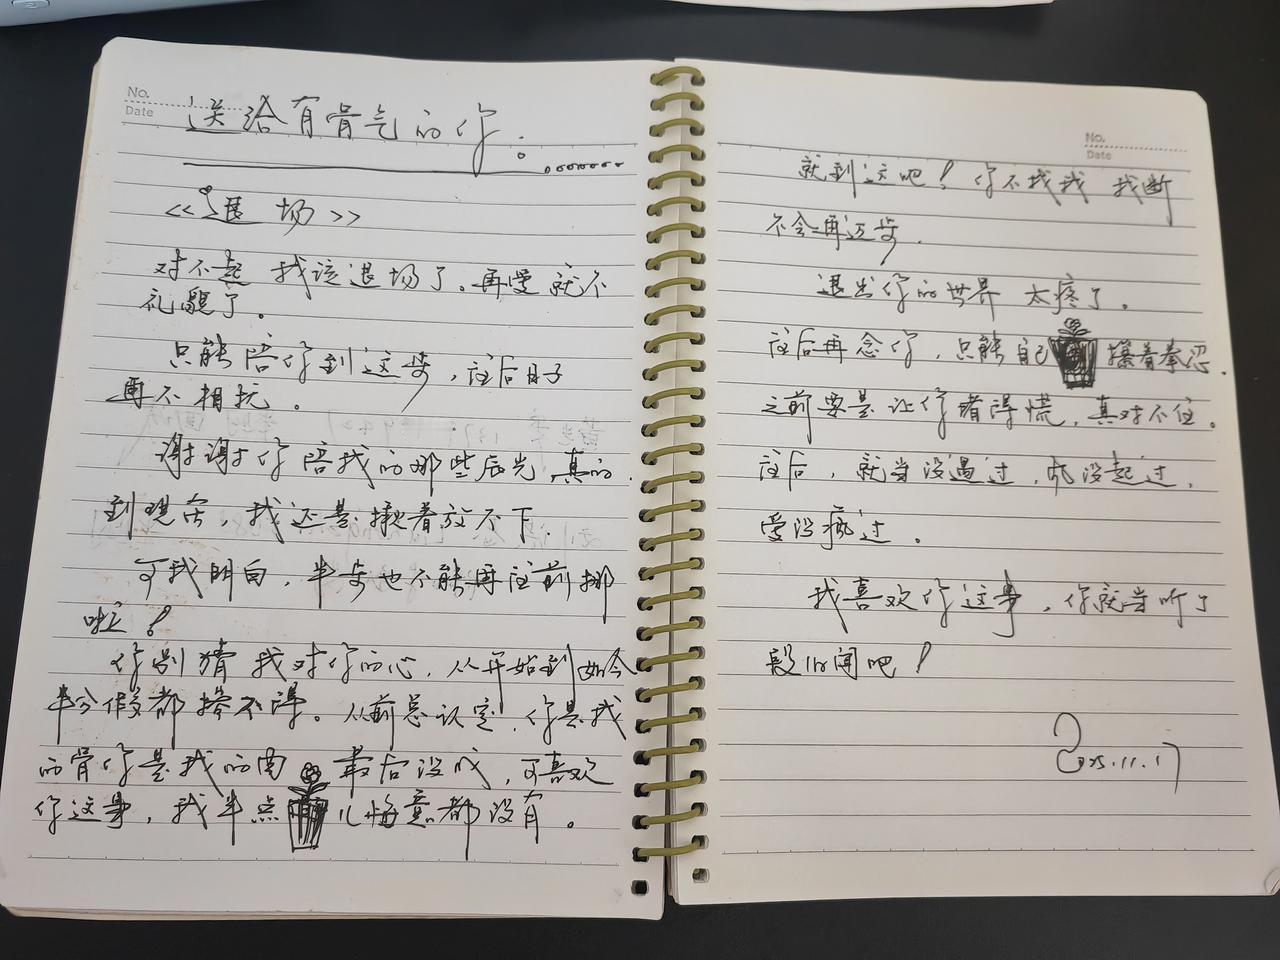 No.
Date
送给有骨气的你:
《退场》
对不起 我该退场了。再爱就不
礼貌了。
只能陪你到这步,往后日子
再不相扰。
谢谢你陪我的那些辰光,真的.
到现在,我还是揪着放不下
可我明白,半步也不能再往前挪
啦!
你别猜我对你的心,从开始到如今
半分假都掺不得。从前总认定,你是我
的骨你是我的肉 最后没成,可喜欢
你这事,我半点 儿悔意都没有。
No.
Date
就到这吧!你不找我 我断
不会再迈步.
退出你的世界 太疼了.
往后再念你,只能自己 攥着拳忍.
之前要是让你者得慌,真对不住。
往后,就当没遇过,心没起过,
爱没疯过.
我喜欢你这事,你就当听了
段旧闻吧!
2025.11.17